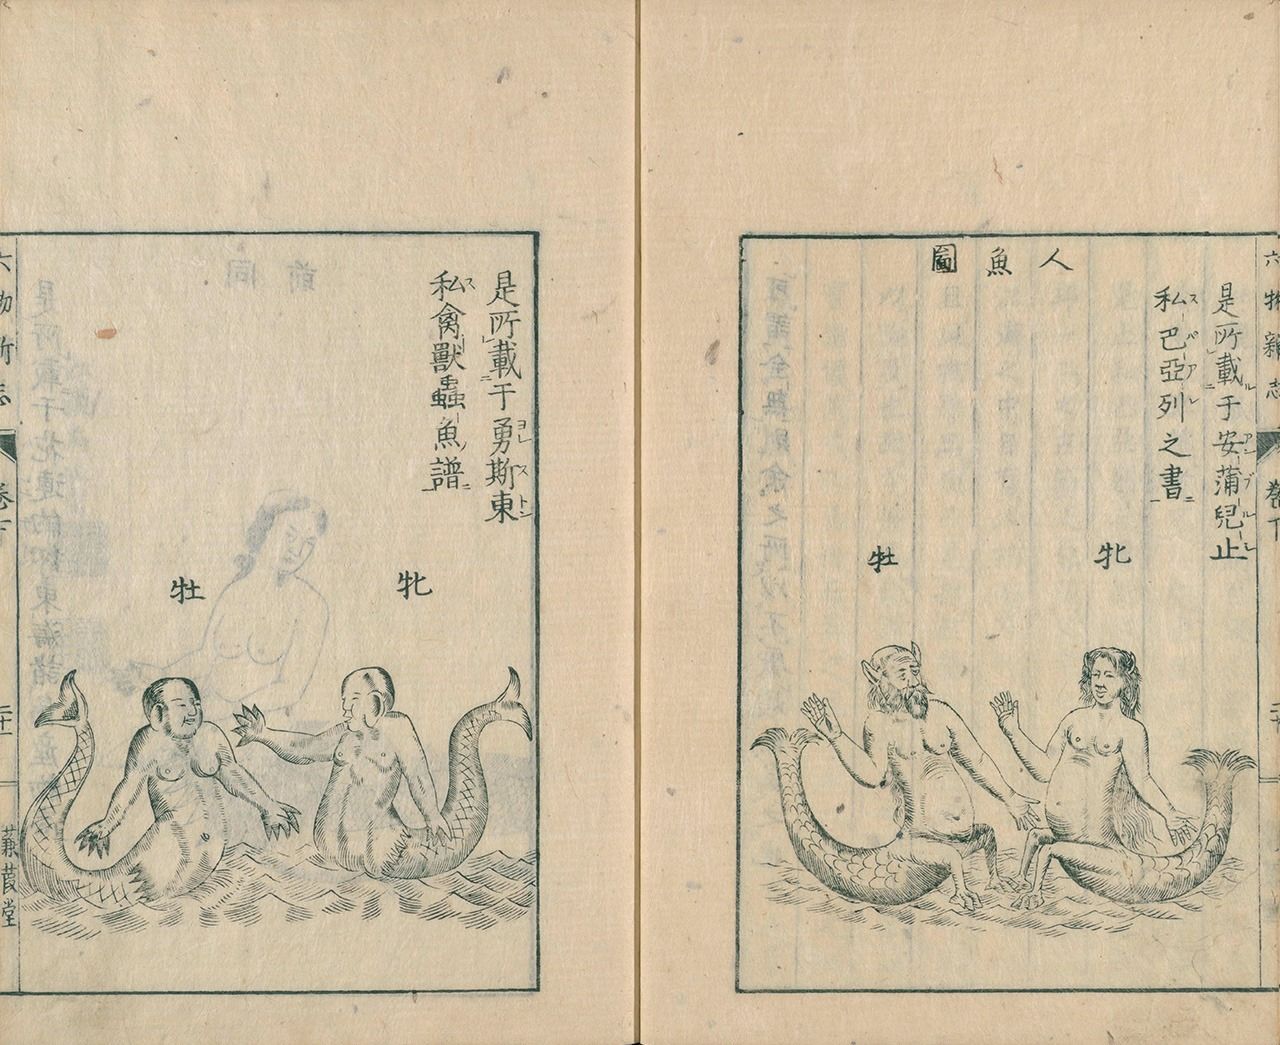 六物新志
卷下
二十
人魚圖
是所載于安蒲兒止
私巴亞列之書
牝
牡
是所載于勇斯東
私禽獸蟲魚譜
牝
牡
六物新志
卷下
二十一
蒹葭堂